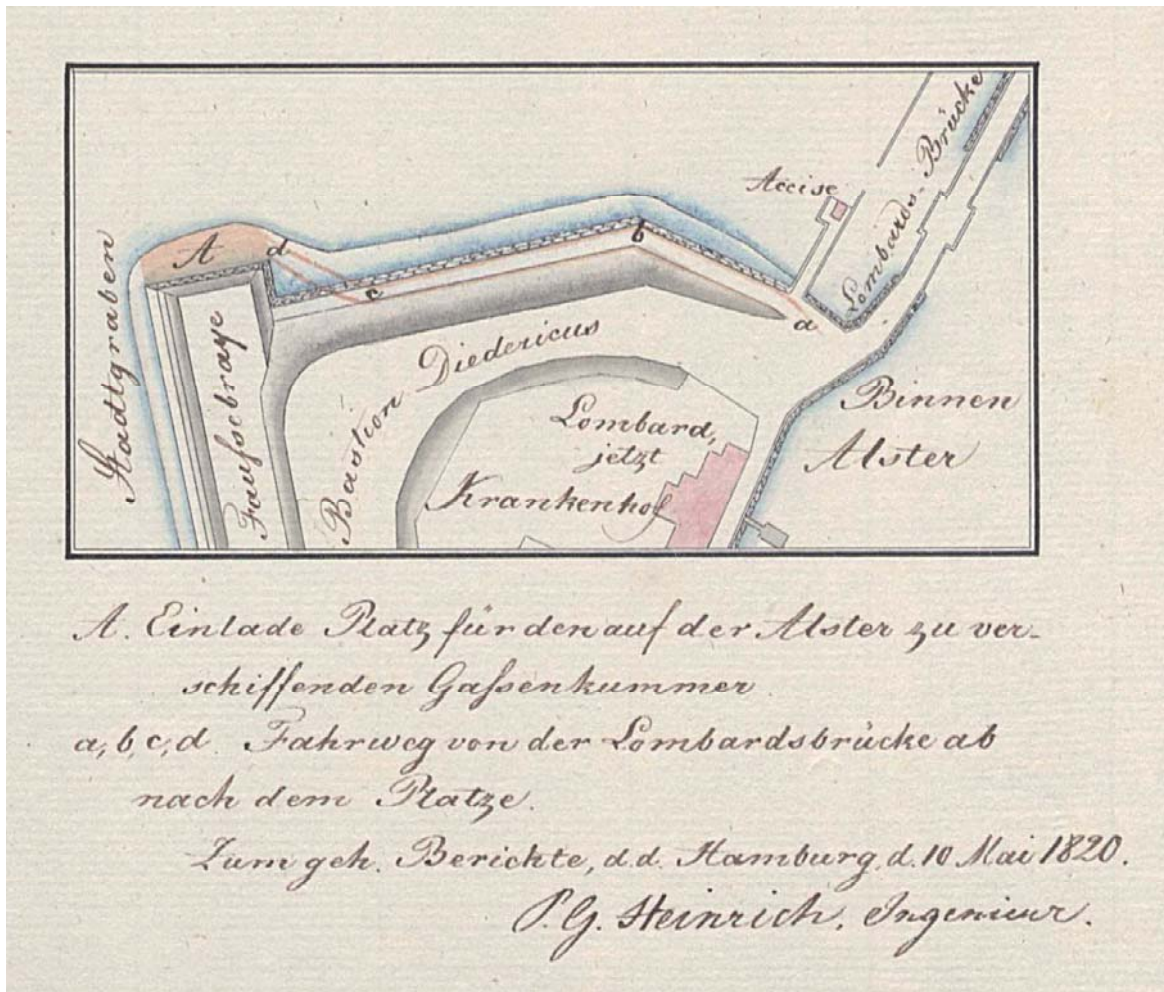 Accise
Lombards-Brücke
b
A
d
c
a
Stadtgraben
Faussebraye
Bastion Diedericus
Lombard,
jetzt
Krankenhof
Binnen
Alster
A. Einlade Platz für den auf der Alster zu ver-
schiffenden Gaßenkummer
a, b, c, d Fahrweg von der Lombardsbrücke ab
nach dem Platze.
Zum geh. Berichte, d. d. Hamburg, d. 10 Mai 1820.
P. G. Heinrich, Ingenieur.